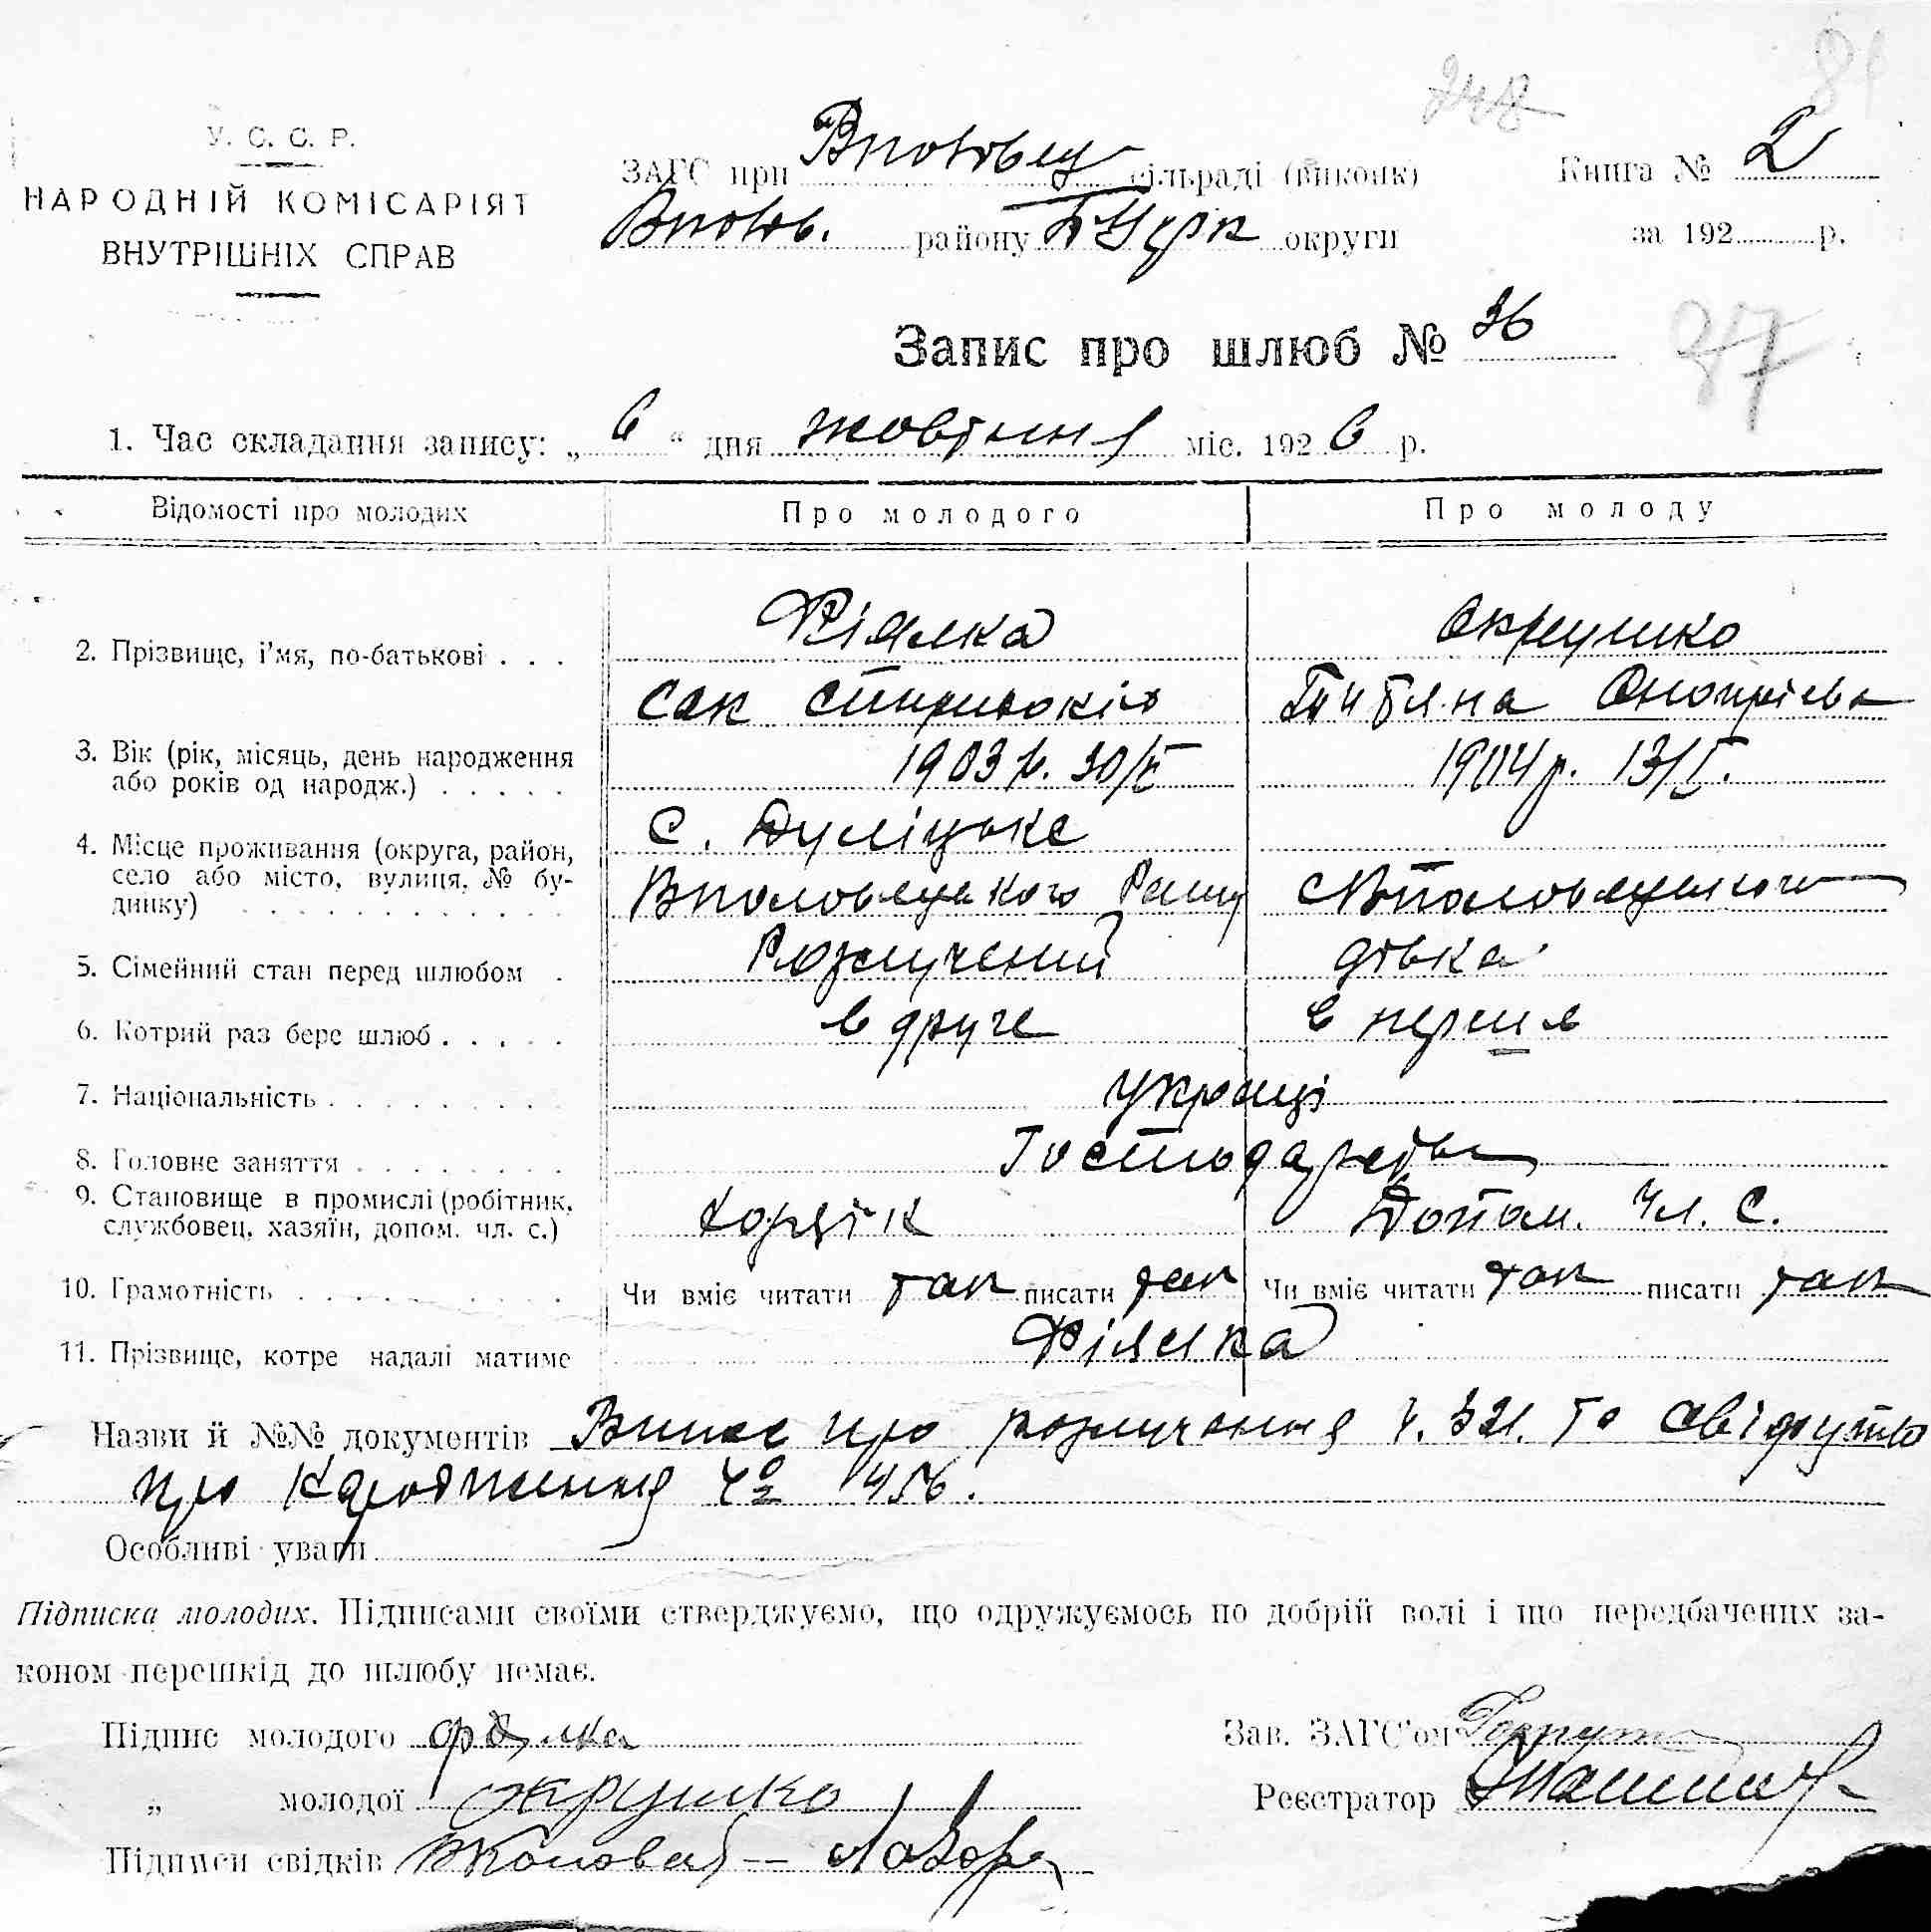 У. С. С. Р.
НАРОДНІЙ КОМІСАРІЯТ
ВНУТРІШНІХ СПРАВ
ЗАГС при сільраді (виконк)
району БЦерк округи
Книга № 2
за 192 р.
Запис про шлюб № 36
37
1. Час складання запису: „6“ дня жовтння міс. 1926 р.
Відомості про молодих Про молодого Про молоду
2. Прізвище, і'мя, по-батькові . . . Фіялка Окрушко
Сак Титяна
3. Вік (рік, місяць, день народження
або років од народж.) . . . . . 1903 р. 1904 р.
4. Місце проживання (округа, район,
село або місто, вулиця, № бу-
динку) . . . . . . . . . . . .
с. Дуліцьке
Вполовецького
5. Сімейний стан перед шлюбом . Розлучений дівка
6. Котрий раз бере шлюб . . . . . в друге в перше
7. Національність . . . . . . . . . українці
8. Головне заняття . . . . . . . .
9. Становище в промислі (робітник,
службовец, хазяїн, допом. чл. с.) Допом. чл. с.
10. Грамотність . . . . . . . . . . Чи вміє читати так писати так Чи вміє читати так писати так
11. Прізвище, котре надалі матиме Фіялка
Назви й №№ документів Випис про розлучення ч. 321. та
про
Особливі уваги
Підписка молодих. Підписами своїми стверджуємо, що одружуємось по добрій волі і що передбачених за-
коном перешкід до шлюбу немає.
Підпис молодого фіялка
„ молодої Окрушко
Підписи свідків
Зав. ЗАГС'ом
Реєстратор